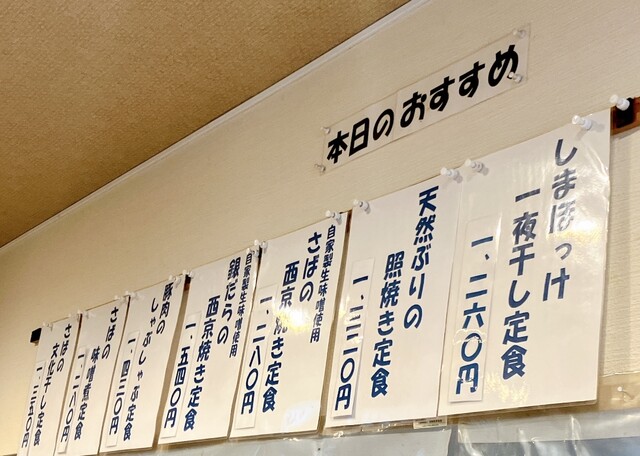 本日のおすすめ
しまほっけ
一夜干し定食
一、二六〇円
天然ぶりの
照焼き定食
一、二二〇円
自家製生味噌使用
さばの
西京焼き定食
一、二八〇円
自家製生味噌使用
銀だらの
西京焼き定食
一、五四〇円
豚肉の
しゃぶしゃぶ定食
一、四二〇円
さばの
味噌煮定食
一、二八〇円
さばの
文化干し定食
一、二五〇円